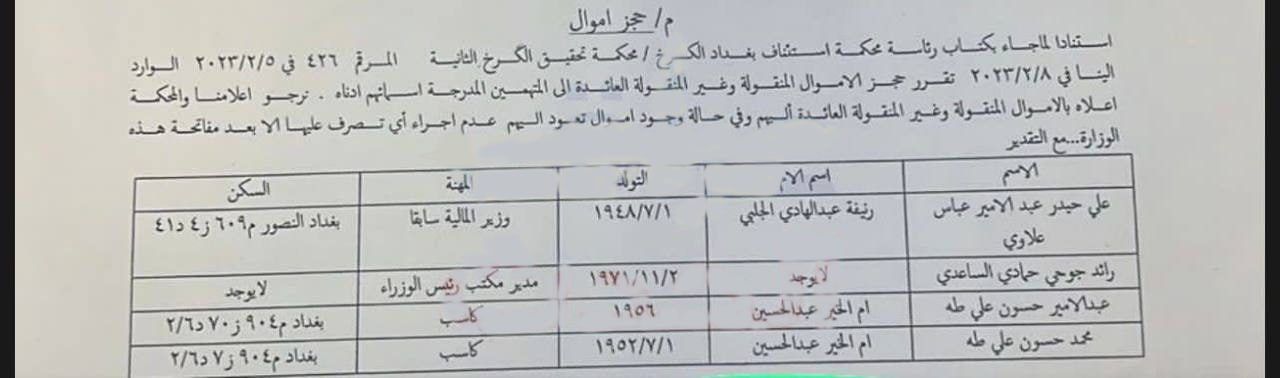 م/ حجز اموال
استنادا لماجاء بكتاب رئاسة محكمة استئناف بغداد الكرخ / محكمة تحقيق الكرخ الثانية المرقم ٤٢٦ في ٢٠٢٣/٢/٥ الوارد
الينا في ٢٠٢٣/٢/٨ تقرر حجز الاموال المنقولة وغير المنقولة العائدة الى المتهمين المدرجة اسمائهم ادناه . نرجو اعلامنا والمحكمة
اعلاه بالاموال المنقولة وغير المنقولة العائدة أليهم وفي حالة وجود اموال تعود اليهم عدم اجراء أي تصرف عليها الا بعد مفاتحة هذه
الوزارة...مع التقدير
الاسم اسم الام التولد المهنة السكن
علي حيدر عبد الامير عباس رنيفة عبدالهادي الجلبي ١٩٤٨/٧/١ وزير المالية سابقا بغداد النصور م٦٠٩ ز٤ د٤١
علاوي
رائد جوحي حمادي الساعدي لايوجد ١٩٧١/١١/٢ مدير مكتب رئيس الوزراء لايوجد
عبدالامير حسون علي طه ام الخير عبدالحسين ١٩٥٦ كاسب بغداد م٩٠٤ ز٧٠ د٢/٦
محمد حسون علي طه ام الخير عبدالحسين ١٩٥٢/٧/١ كاسب بغداد م٩٠٤ ز٧ د٢/٦